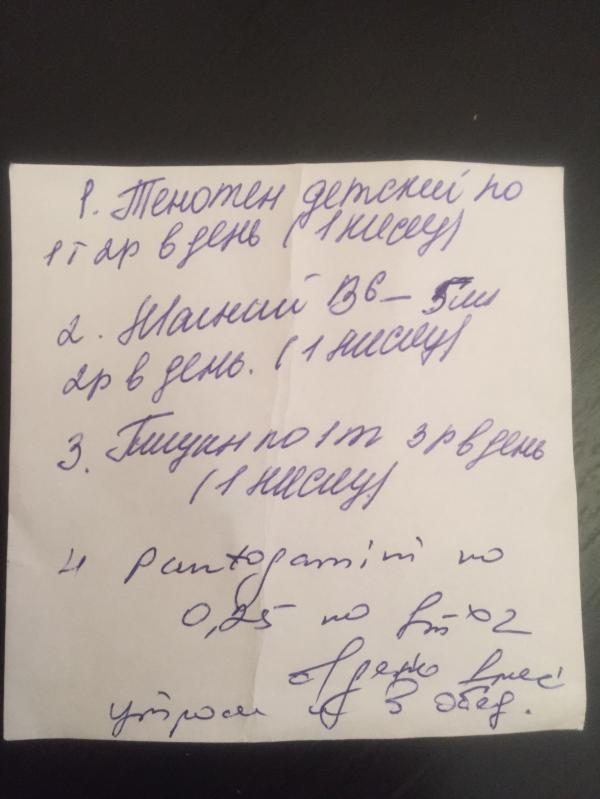 1. Тенотен детский по
1т 2р в день (1 месяц)
2. Магний B6 – 5мл
2р в день. (1 месяц)
3. по 1т 3р в день
(1 месяц)
4 Pantogamini по
0,25 по 1т х 2
утром и в обед.